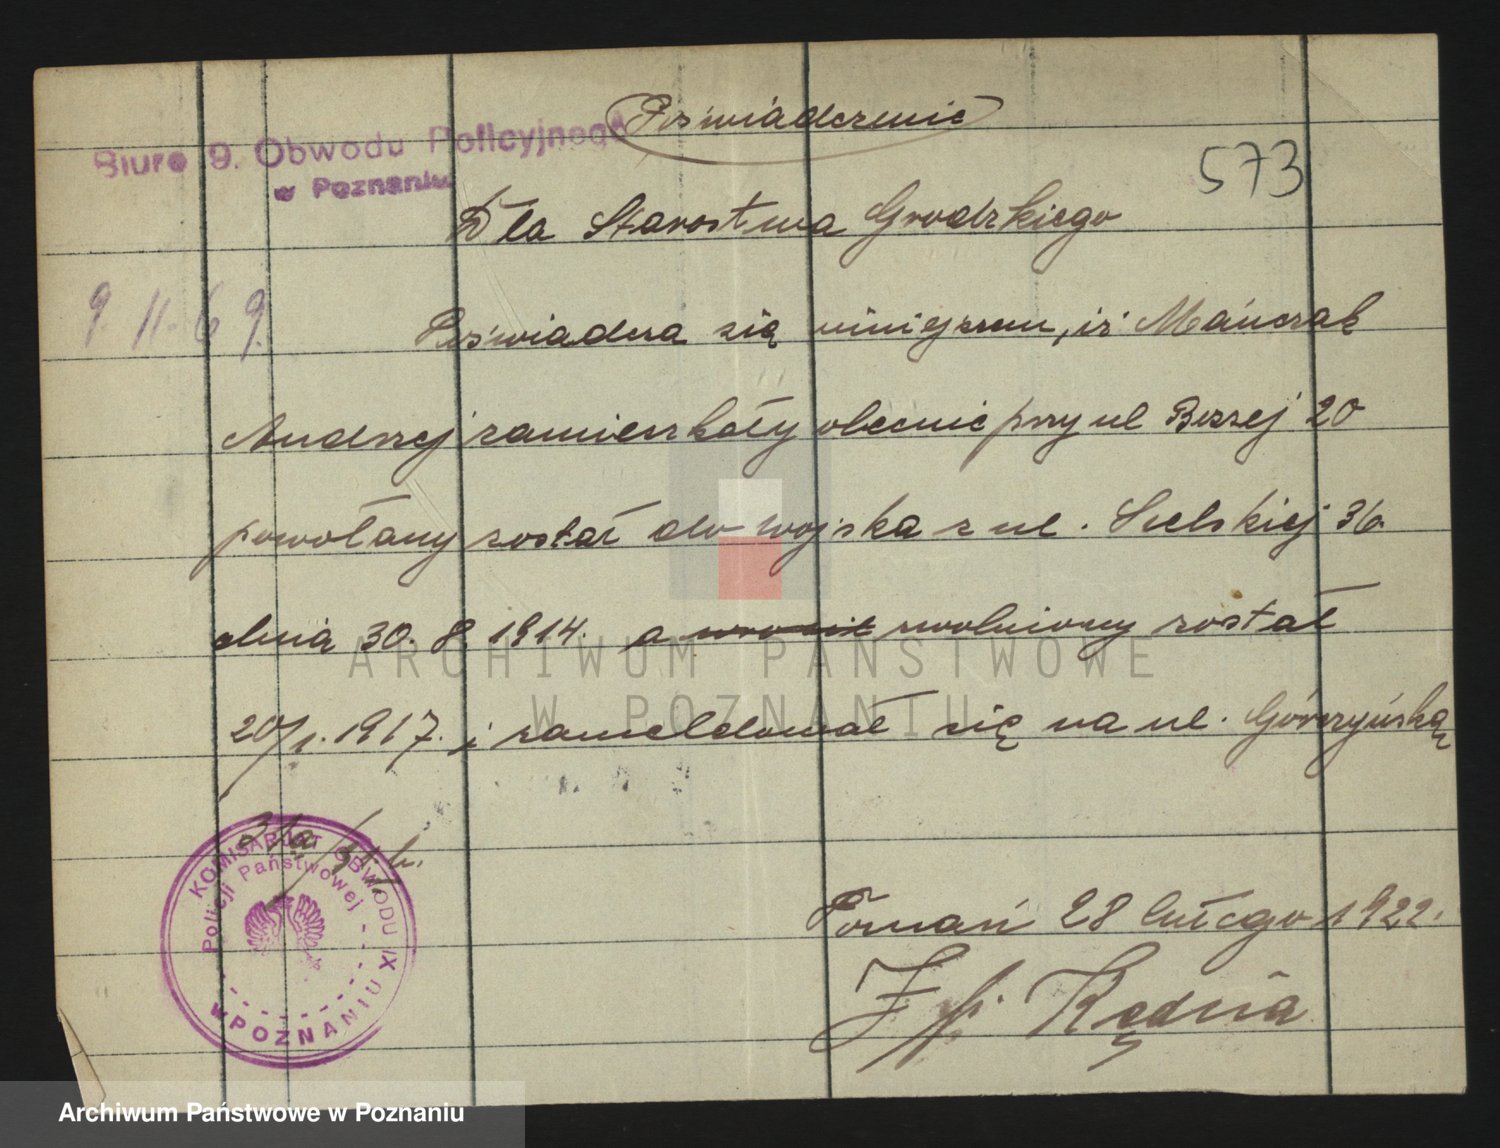 Poświadczenie
Biuro 9. Obwodu Policyjnego
w Poznaniu
573
Dla Starostwa Grodzkiego
9. 11. 69.
Poświadcza się niniejszem, iż Mańczak
Andrzej zamieszkały obecnie przy ul Bezzej 20
powołany został do wojska z ul. Sielskiej 36.
dnia 30. 8. 1914. a zwolniony został
20/1. 1917. i zameldował się na ul. Górczyńską
31a
KOMISARJAT OBWODU IX
Policji Państwowej
w POZNANIU
Poznań 28 lutego 1922.
Kędzia
ARCHIWUM PAŃSTWOWE
W POZNANIU
Archiwum Państwowe w Poznaniu